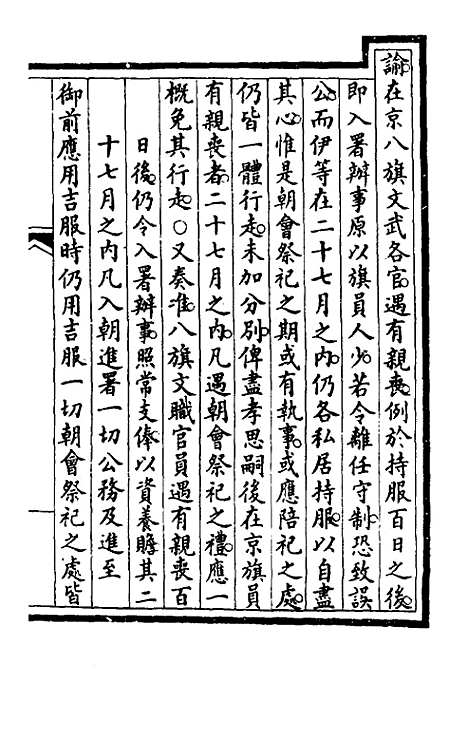 諭在京八旗文武各官遇有親喪例於持服百日之後
即入署辦事原以旗員人少若令離任守制恐致誤
公而伊等在二十七月之內仍各私居持服以自盡
其心惟是朝會祭祀之期或有執事或應陪祀之處
仍皆一體行走未加分別俾盡孝思嗣後在京旗員
有親喪者二十七月之內凡遇朝會祭祀之禮應一
概免其行走○又奏准八旗文職官員遇有親喪百
日後仍令入署辦事照常支俸以資養贍其二
十七月之內凡入朝進署一切公務及進至
御前應用吉服時仍用吉服一切朝會祭祀之處皆